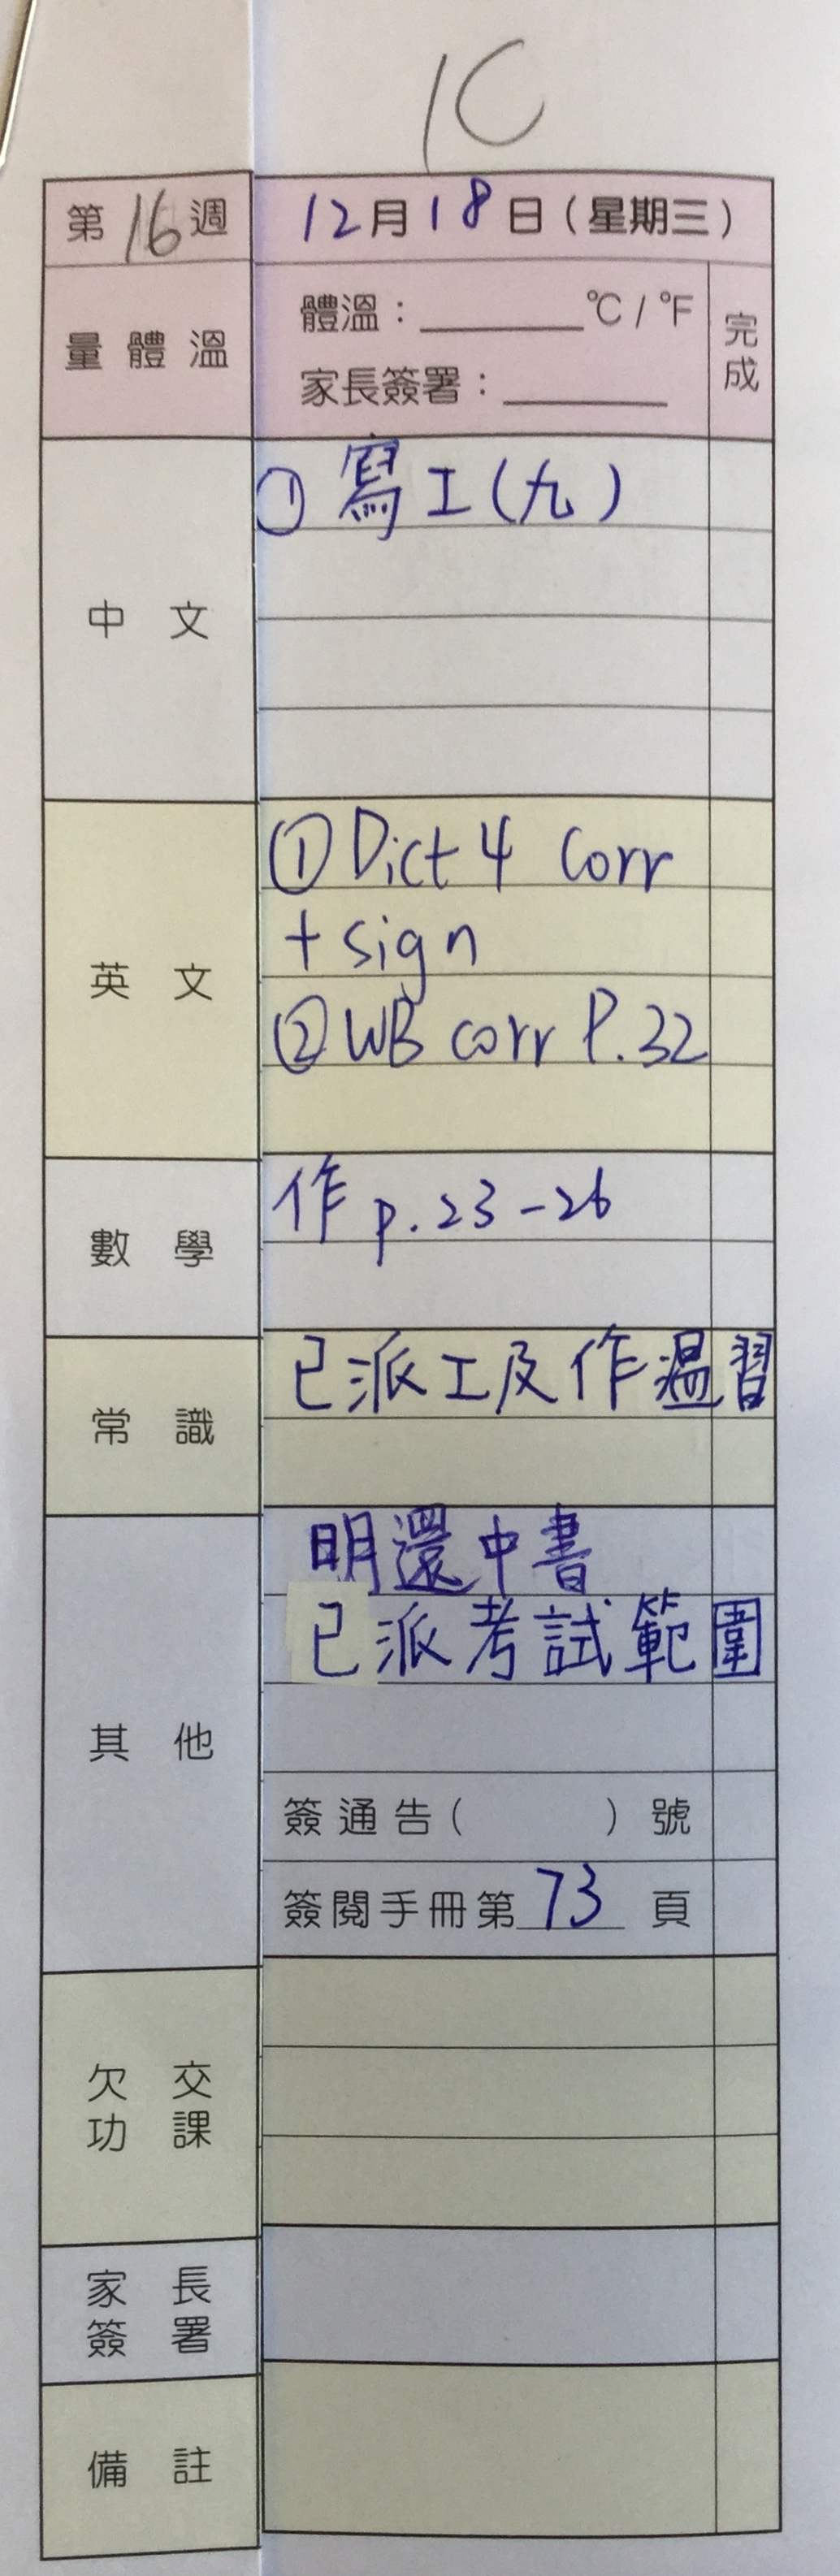 1C
第16週 12月18日(星期三)
量體溫 體溫:______℃/℉
家長簽署:______
完成
中文 ①寫工(九)
英文 ①Dict 4 Corr
+ sign
②WB corr P.32
數學 作 p.23-26
常識 已派工及作溫習
其他 明還中書
已派考試範圍
簽通告( )號
簽閱手冊第73頁
欠交
功課
家長
簽署
備註